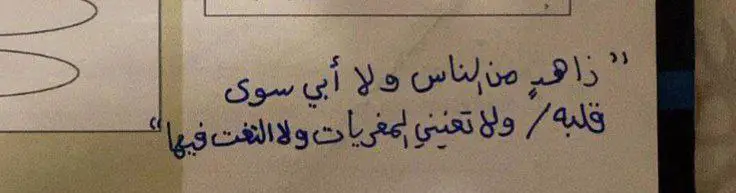 "ذاهدٍ من الناس ولا أبي سوى
قلبه / ولا تعنيني المغريات ولا التفت فيها"